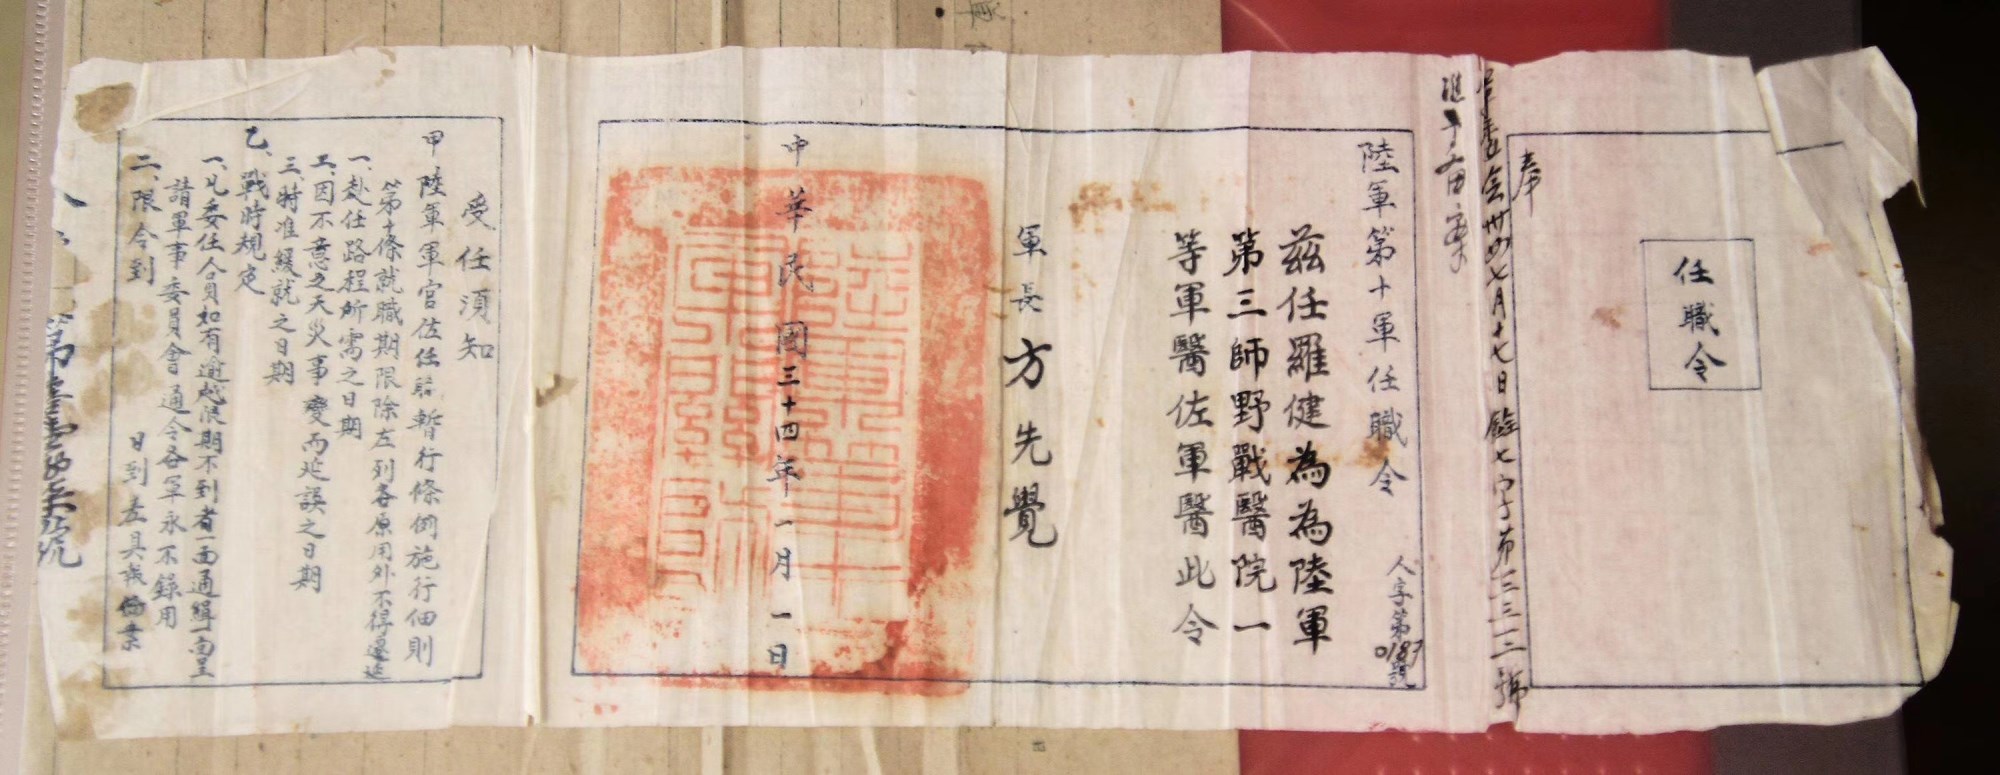 任職令
奉
軍委會卅四七月十七日銓七字第三三三號
准予備案
陸軍第十軍任職令
人字第0187號
茲任羅健為為陸軍
第三師野戰醫院一
等軍醫佐軍醫此令
軍長方先覺
中華民國三十四年一月一日
受任須知
甲陸軍軍官佐任職暫行條例施行細則
第十條就職期限除左列各原用外不得遷延
一、赴任路程所需之日期
二、因不意之天災事變而延誤之日期
三、時准緩就之日期
乙、戰時規定
一、凡委任人員如有逾越限期不到者一面通緝一面呈
請軍事委員會通令各軍永不錄用
二、限令到 日到差具報備案